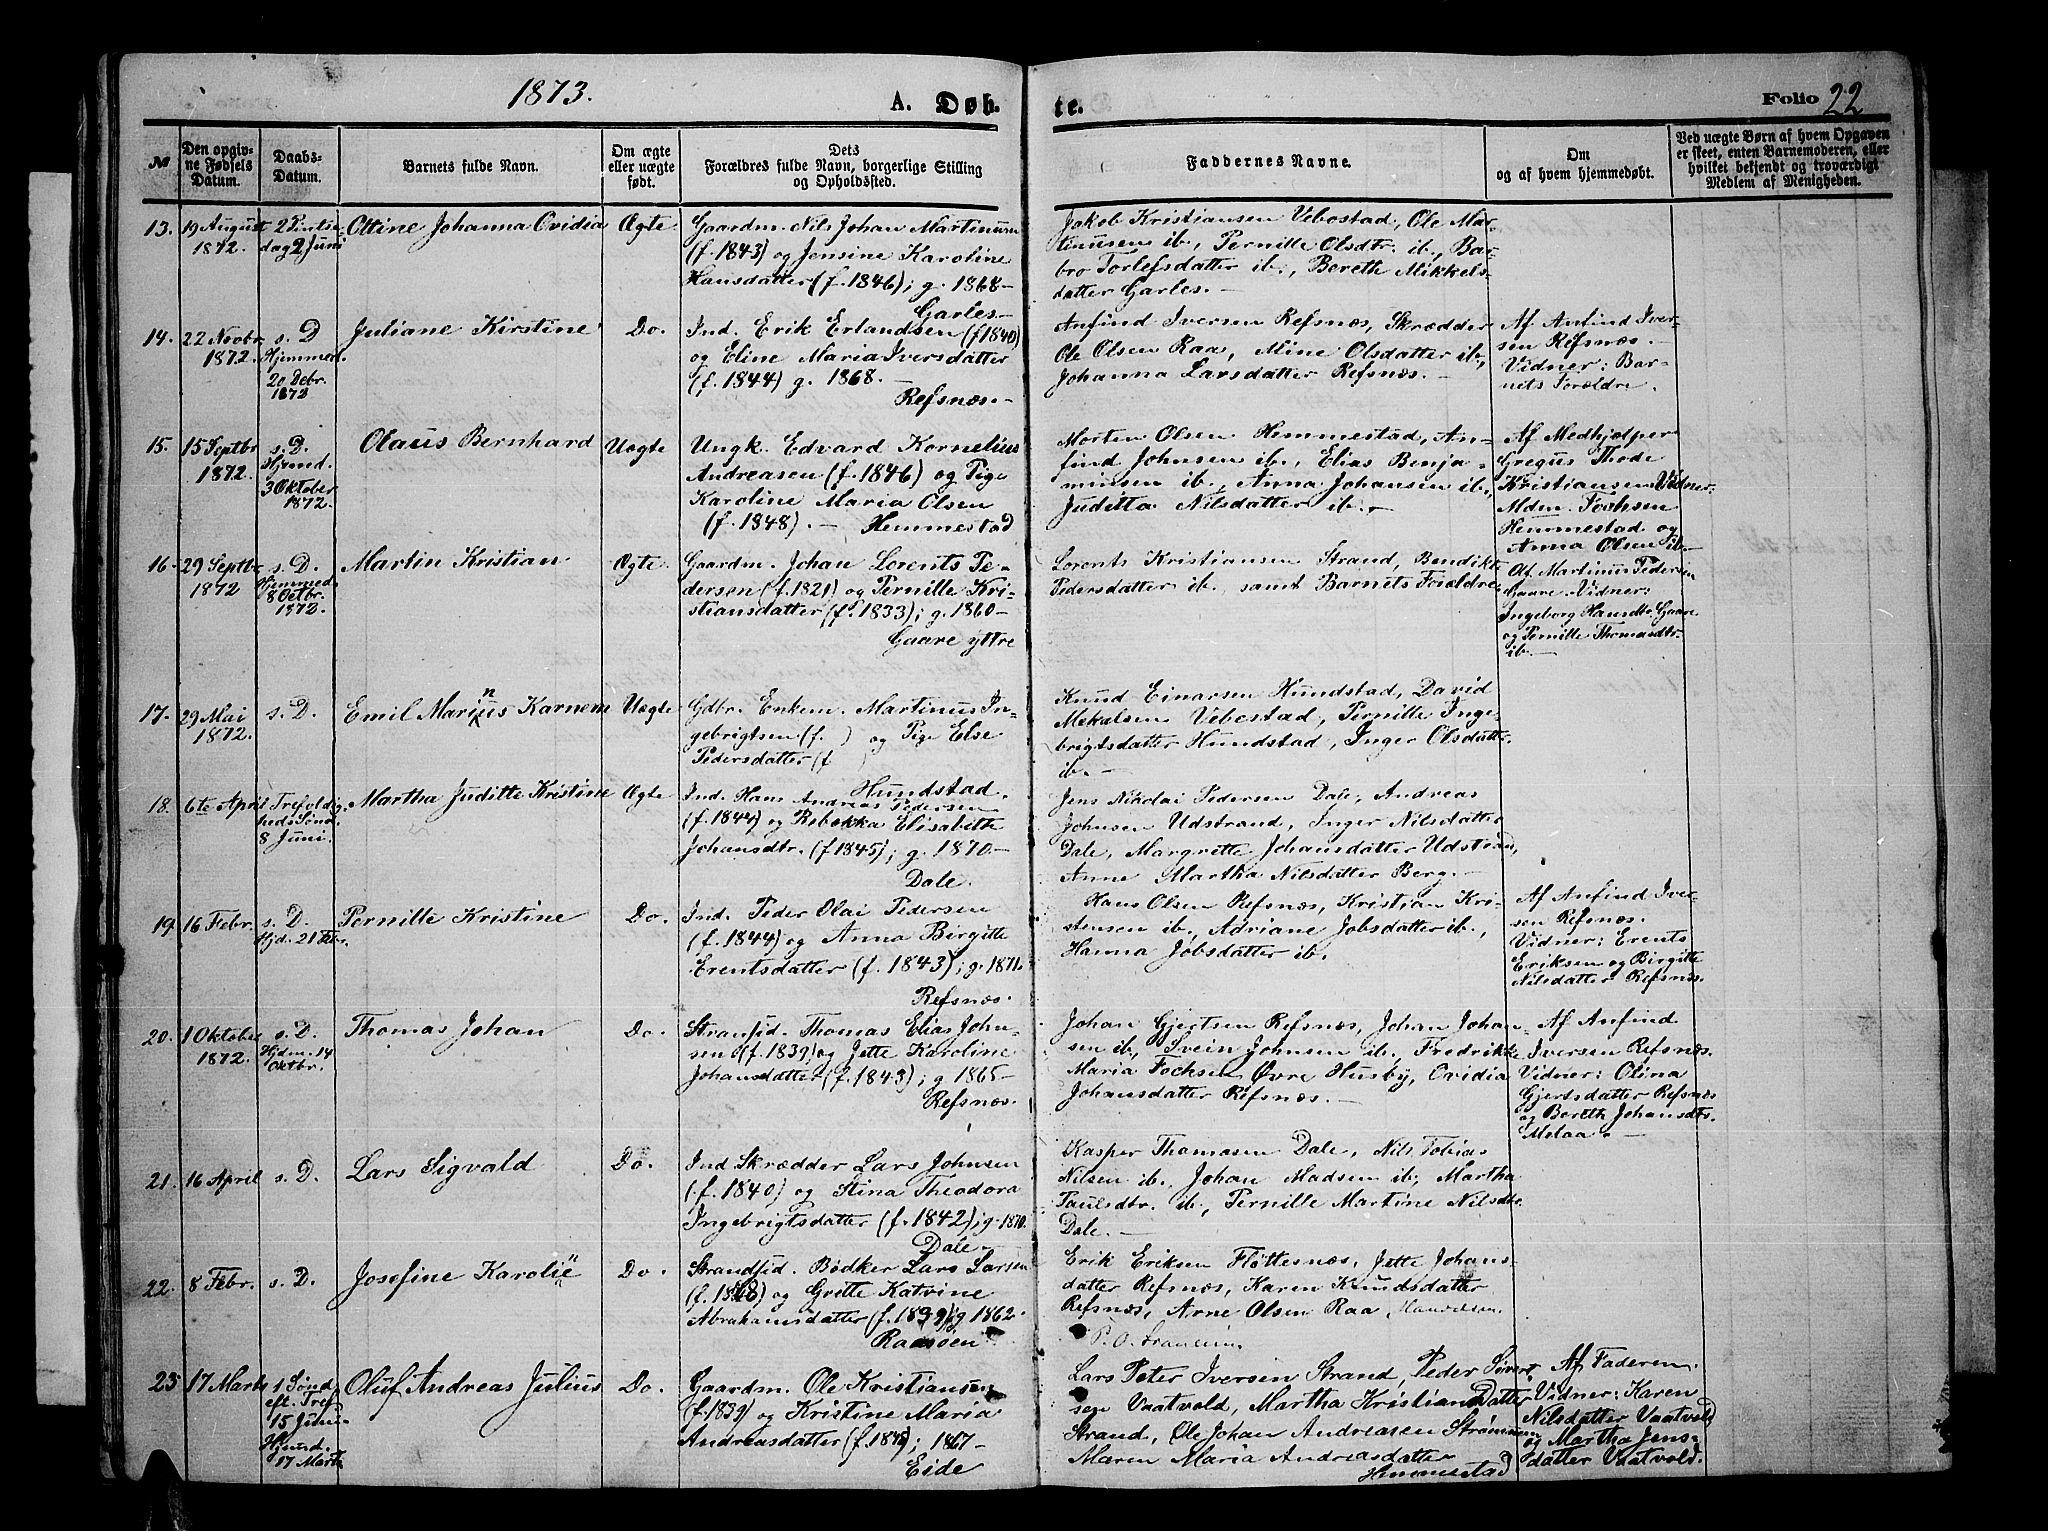 1873.
A. Døb-
te.
Folio 22
№
Den opgiv-
ne Fødsels
Datum.
Daabs-
Datum.
Barnets fulde Navn.
Om ægte
eller uægte
født.
Dets
Forældres fulde Navn, borgerlige Stilling
og Opholdssted.
Faddernes Navne.
Om
og af hvem hjemmedøbt.
Ved uægte Børn af hvem Opgaven
er skeet, enten Barnemoderen, eller
hvilket bekjendt og troværdigt
Medlem af Menigheden.
13.
19 August
1872.
2 Pintse-
dag 2 Juni
Ottine Johanna Ovidia
Ægte
Gaardm. Nils Johan Martinusen
(f. 1843) og Jensine Karoline
Hansdatter (f. 1846); g. 1868 –
Garles –
Jakob Kristiansen Vebostad, Ole Mar-
tinusen ib., Pernille Olsdtr. ib., Bar-
bro Torlefsdatter ib., Bereth Mikkels-
datter Garles. –
14.
22 Novbr.
1872.
s. D
Hjemmed.
20 Debr.
1872
Juliane Kirstine
Do.
Ind. Erik Erlandsen (f 1840)
og Eline Maria Iversdatter
(f. 1844) g. 1868. –
Refsnæs. –
Anfind Iversen Refsnæs, Skrædder
Ole Olsen Raa, Mine Olsdatter ib.,
Johanna Larsdatter Refsnæs. –
Af Anfind Iver-
sen Refsnæs. –
Vidner: Bar-
nets Forældre.
15.
15 Septbr
1872.
s. D.
Hjmed.
3 Oktober
1872.
Olaus Bernhard
Uægte
Ungk. Edvard Kornelius
Andreasen (f. 1846) og Pige
Karoline Maria Olsen
(f. 1848). – Hemmestad
Morten Olsen Hemmestad, An-
find Johnsen ib., Elias Benja-
minsen ib., Anna Johansen ib.,
Juditta Nilsdatter ib. –
Af Medhjælper
Gregus Thode
Kristiansen Vidner:
Mdm. Fochsen
Hemmestad og
Anna Olsen ib. –
16.
29 Septbr.
1872
s. D.
Hjemmed.
8 Octbr.
1872.
Martin Kristian
Ægte
Gaardm. Johan Lorents Pe-
dersen (f. 1821) og Pernille Kri-
stiansdatter (f. 1833); g. 1860 –
Gaare yttre
Lorents Kristiansen Strand, Bendikte
Pedersdatter ib., samt Barnets Forældre
Af Martinus Pedersen
Gaare. Vidner:
Ingeborg Hansdtr. Gaare
og Pernille Thomasdtr.
ib. –
17.
29 Mai
1872.
s. D.
Emil Marinus Karnem
Uægte
Gdbr. Enkem. Martinus In-
gebrigtsen (f. ) og Pige Else
Pedersdatter (f
Hundstad.
Knud Einarsen Hundstad, David
Mekalsen Vebostad, Pernille Inge-
brigtsdatter Hundstad, Inger Olsdatter
ib. –
18.
6te April
Trefoldig-
hedsSønd.
8 Juni.
Martha Juditte Kristine
Ægte
Ind. Hans Andreas Pedersen
(f. 1844) og Rebekka Elisabeth
Johansdtr. (f. 1845); g. 1870 –
Dale.
Jens Nikolai Pedersen Dale, Andreas
Johnsen Udstrand, Inger Nilsdatter
Dale, Margrette Johansdatter Udstran,
Anne Martha Nilsdatter Berg. –
19.
16 Febr.
s. D.
Hjd. 21 Febr.
Pernille Kristine
Do.
Ind. Peder Olai Pedersen
(f. 1844) og Anna Birgitte
Erentsdatter (f. 1843); g. 1871.
Refsnæs.
Hans Olsen Refsnæs, Kristian Kri-
stensen ib., Adriane Jobsdatter ib.,
Hanna Jobsdatter ib.
Af Anfind Iver-
sen Refsnæs.
Vidner: Erents
Eriksen og Birgitte
Nilsdatter Refsnæs.
20.
1 Oktober
1872.
s. D.
Hjdm. 14
Oktbr.
Thomas Johan
Do.
Stransid. Thomas Elias John-
sen (f. 1839) og Jette Karoline
Johansdatter (f. 1843); g 1865 –
Refsnæs.
Johan Gjertsen Refsnæs, Johan Johan-
sen ib., Svein Johnsen ib., Fredrikke
Maria Fochsen Øvre Husby, Ovidia
Johansdatter Refsnæs. –
Af Anfind
Iversen Refsnæs.
Vidner: Olina
Gjertsdatter Refsnæs
og Bereth Johansdtr.
Melaa. –
21.
16 April
s. D.
Lars Sigvald
Do.
Ind Skrædder Lars Johnsen
(f. 1840) og Stina Theodora
Ingebrigtsdatter (f. 1842); g. 1870.
Dale –
Kasper Thomasen Dale, Nils Tobias
Nilsen ib., Johan Madsen ib., Martha
Paulsdtr. ib., Pernille Martine Nilsdtr.
Dale. –
22.
8 Febr.
s. D.
Josefine Karolie
Do.
Strandsid. Bødker Lars Larsen
og Gritte Katrine
Abrahamsdatter g 1862.
Raasøen
Erik Eriksen Fløttesnæs, Jette Johans-
datter Refsnæs, Karen Knudsdatter
Refsnæs, Arne Olsen Raa
P. O.
23
17 Marts
1 Sønd.
eft. Tref.
15 Juni
Hjmd.
17 Marts
Oluf Andreas Julius
Do.
Gaardm. Ole Kristiansen
(f. 1839) og Kristine Maria
Andreasdatter ; 1867 –
Eide
Lars Peter Iversen Strand, Peder Sivert-
sen Vaatvold, Martha Kristian Datter
Strand, Ole Johan Andreasen Strømmen
Maren Maria Andreasdatter
Hemmestad
Af Faderen.
Vidner: Karen
Nilsdatter Vaatvold
og Martha Jens-
datter Vaatvold.